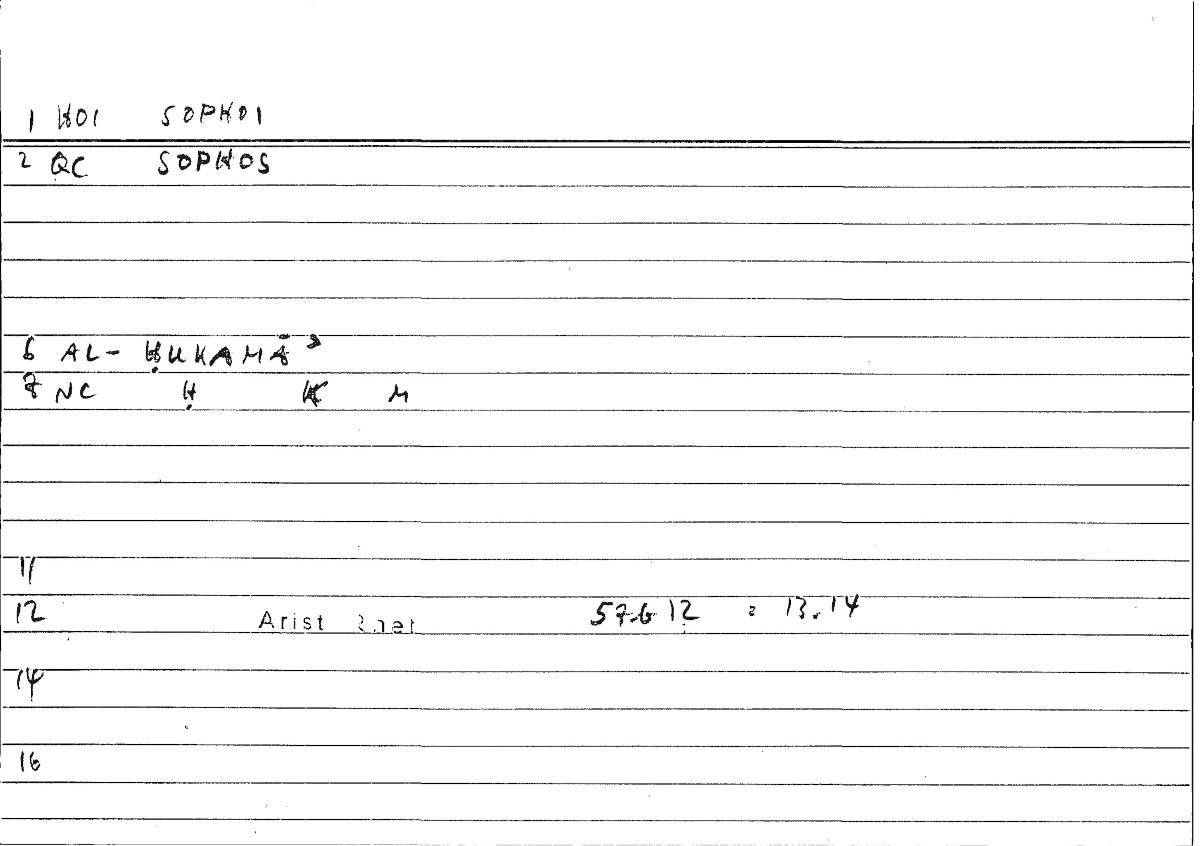 1 HOI SOPHOI
2 QC SOPHOS
6 AL- ḤUKAMĀʾ
7 NC Ḥ K M
11
12 Arist Rhet 57b12 : 13.14
14
16